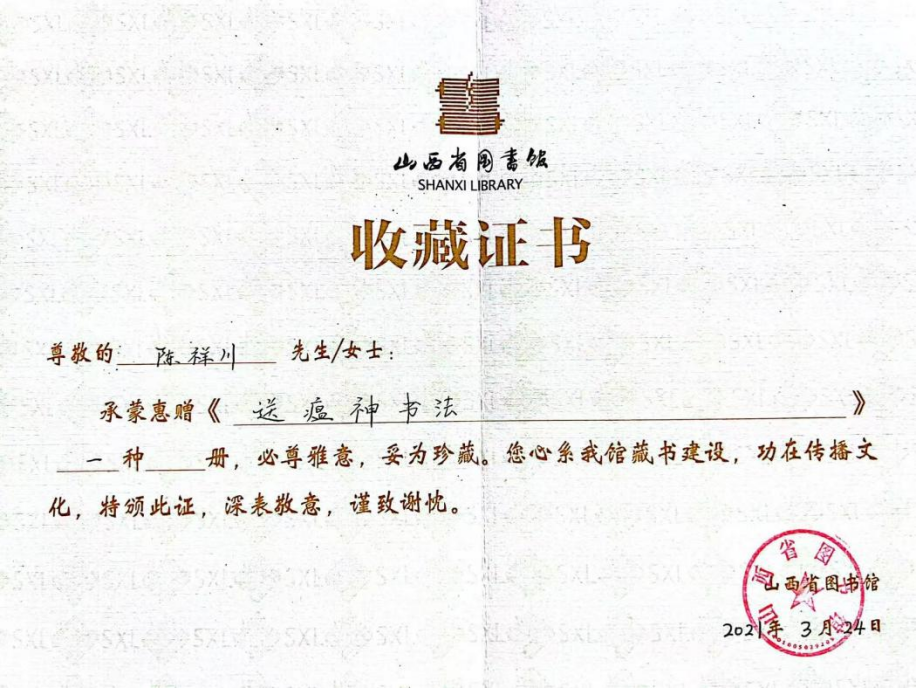 山西省图书馆
SHANXI LIBRARY
收藏证书
尊敬的 陈祥川 先生/女士：
承蒙惠赠《 送瘟神书法 》
一 种 册，必尊雅意，妥为珍藏。您心系我馆藏书建设，功在传播文
化，特颁此证，深表敬意，谨致谢忱。
山西省图书馆
山西省图书馆
2021年 3月24日